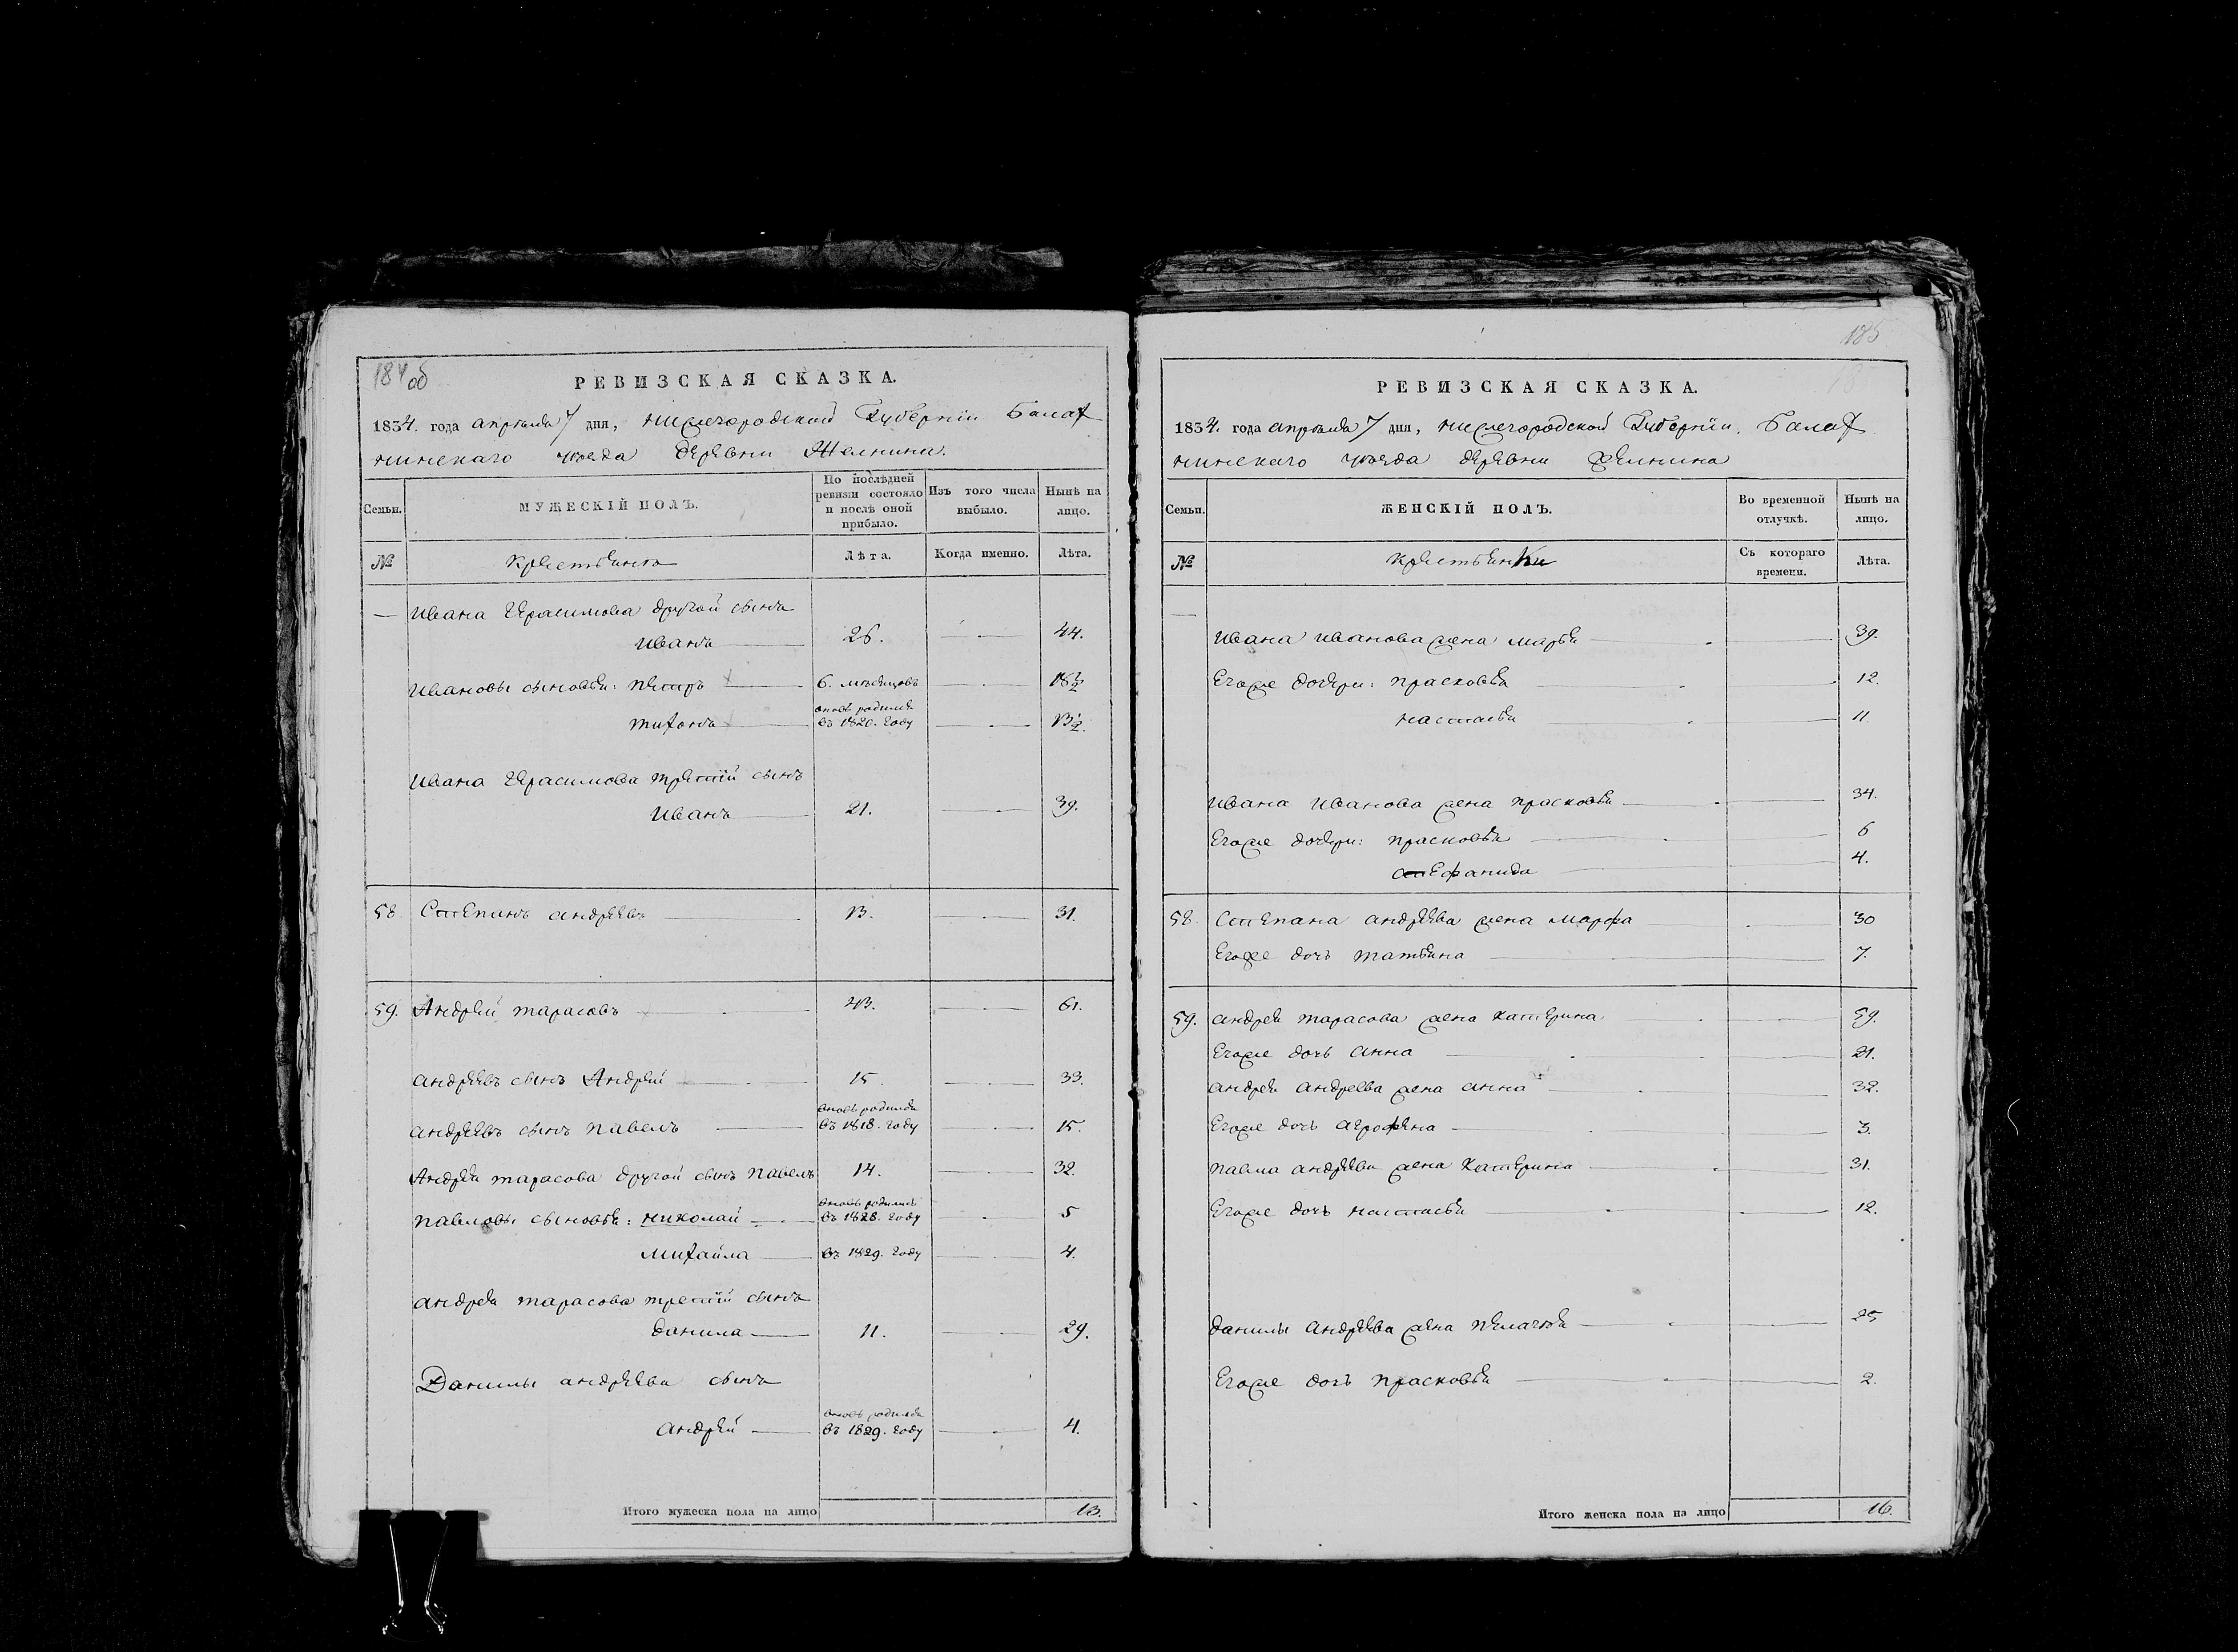 184об
РЕВИЗСКАЯ СКАЗКА.
1834. года апреля 7 дня, нижегородской Губернии Балах
нинскаго уезда деревни Желнина.
Семьи.
МУЖЕСКІЙ ПОЛЪ.
По послѣдней ревизіи состояло и послѣ оной прибыло.
Изъ того числа выбыло.
Нынѣ на лицо.
№
крестьянъ
Лѣта.
Когда именно.
Лѣта.
— Ивана Герасимова другой сынъ
Иванъ 26. 44.
Ивановы сыновья: петръ 6. месяцовъ 18½
тихонъ вновь родился въ 1820. году 13½.
Ивана Герасимова третій сынъ
Иванъ 21. 39.
58. Степанъ андреевъ 13. 31.
59. Андрей тарасовъ 43. 61.
андреевъ сынъ Андрей 15 33.
андреевъ сынъ павелъ вновь родился въ 1818. году 15.
Андрея тарасова другой сынъ павелъ 14. 32.
павловы сыновья: николай вновь родились въ 1828. году 5
михайла въ 1829. году 4.
андрея тарасова третій сынъ
данила 11. 29.
Данилы андреева сынъ
андрей вновь родился въ 1829. году 4.
Итого мужеска пола на лицо 13.
185
РЕВИЗСКАЯ СКАЗКА.
1834. года апреля 7 дня, нижегородской Губерніи. Балах
нинскаго уезда деревни желнина
Семьи.
ЖЕНСКІЙ ПОЛЪ.
Во временной отлучкѣ.
Нынѣ на лицо.
№
крестьянки
Съ котораго времени.
Лѣта.
—
Ивана Иванова жена марья 39.
Егоже дочери: прасковья 12.
настасья 11.
Ивана Иванова жена прасковья 34.
Егоже дочери: прасковья 6
степанида 4.
58. Степана андреева жена марфа 30
Егоже дочь татьяна 7.
59. андрея тарасова жена катерина 59.
Егоже дочь анна 21.
андрея андреева жена анна 32.
Егоже дочь аграфена 3.
павла андреева жена катерина 31.
Егоже дочь настасья 12.
данилы андреева жена пелагея 25
Егоже дочь прасковья 2.
Итого женска пола на лицо 16.